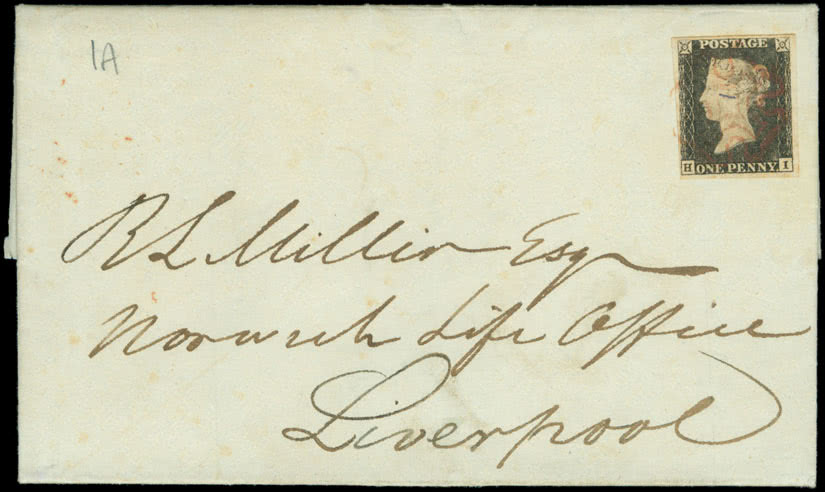 1A
POSTAGE
H ONE PENNY I
R L Millir Esq
Norwich Life Office
Liverpool